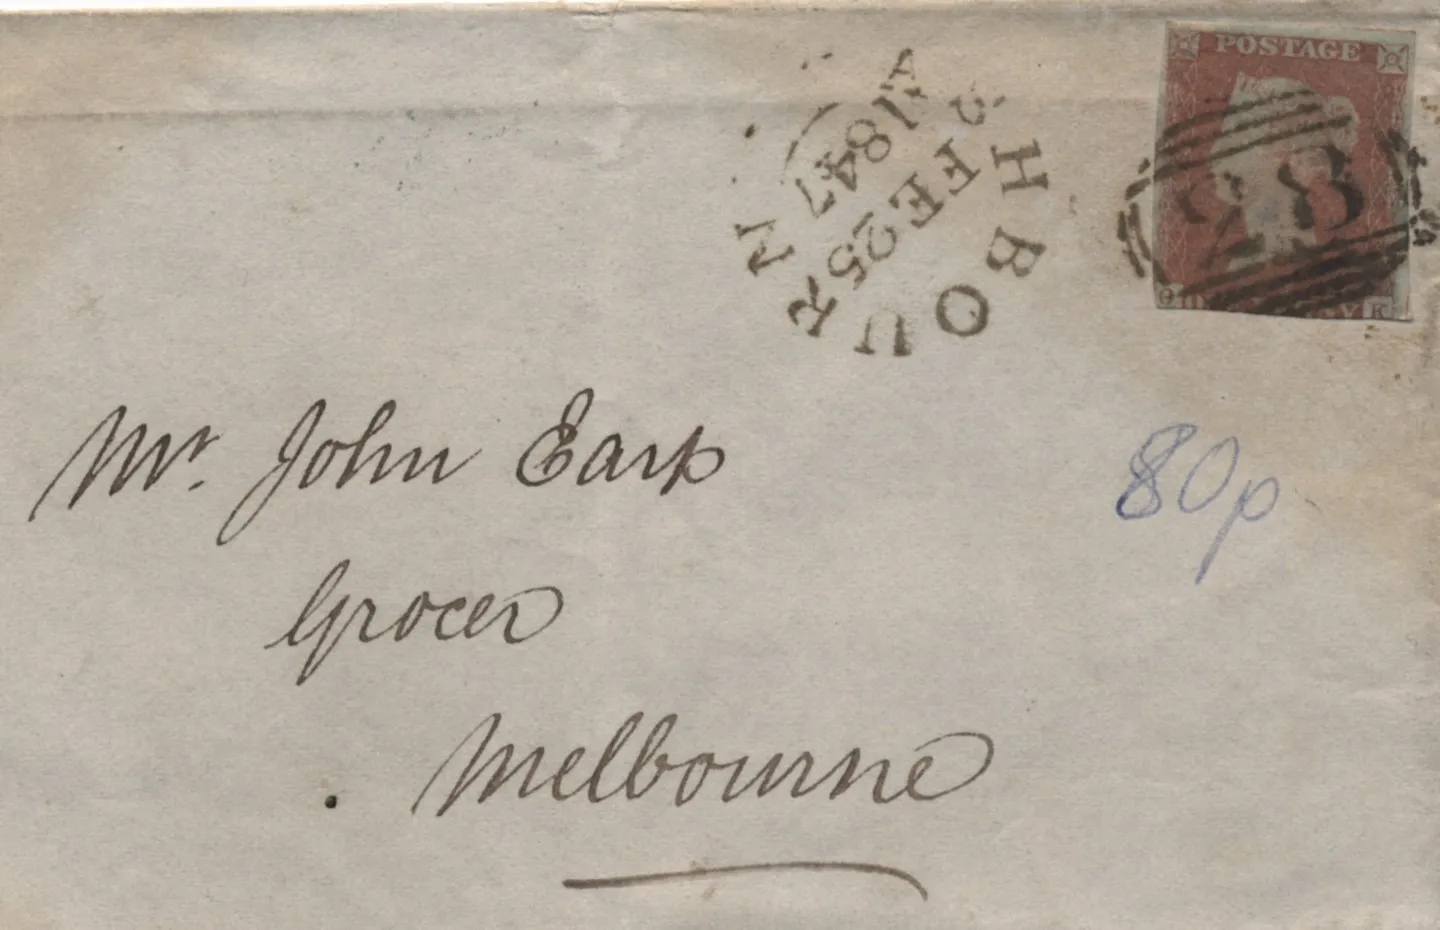 POSTAGE
28
HBOURN
FE 25
1847
Mr. John Earp
Grocer
Melbourne
80p